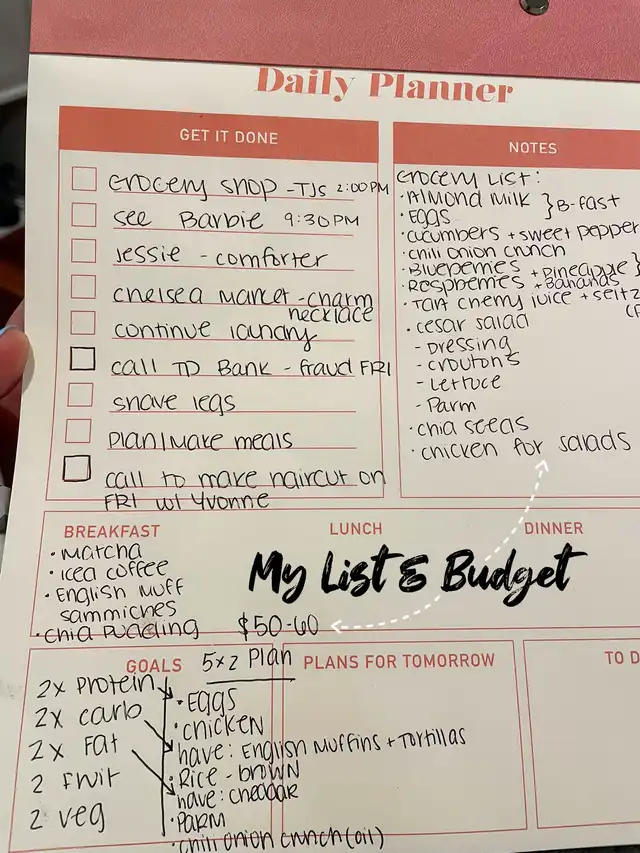 Daily Planner
GET IT DONE
Grocery shop - TJs 2:00PM
see Barbie 9:30PM
Jessie - comforter
Chelsea Market - charm
necklace
continue laundry
call TD Bank - fraud FRI
shave legs
plan/make meals
call to make haircut on
FRI w/ Yvonne
NOTES
Grocery List:
· Almond Milk } B-fast
· Eggs
· cucumbers + sweet pepper
· chili onion crunch
· Blueberries + Pineapple }
· Raspberries + Bananas
· Tart cherry juice + seltz
· cesar salad
- Dressing
- croutons
- Lettuce
- Parm
· chia seeds
· chicken for salads
BREAKFAST
· Matcha
· Iced coffee
· English Muff
sammiches
· Chia Pudding
LUNCH
DINNER
My List & Budget
$50-60
GOALS
5x2 Plan
2x Protein
2x carb
2x Fat
2 Fruit
2 veg
· Eggs
· chicken
have: English Muffins + Tortillas
· Rice - brown
have: cheddar
· Parm
· chili onion crunch (oil)
PLANS FOR TOMORROW
TO D